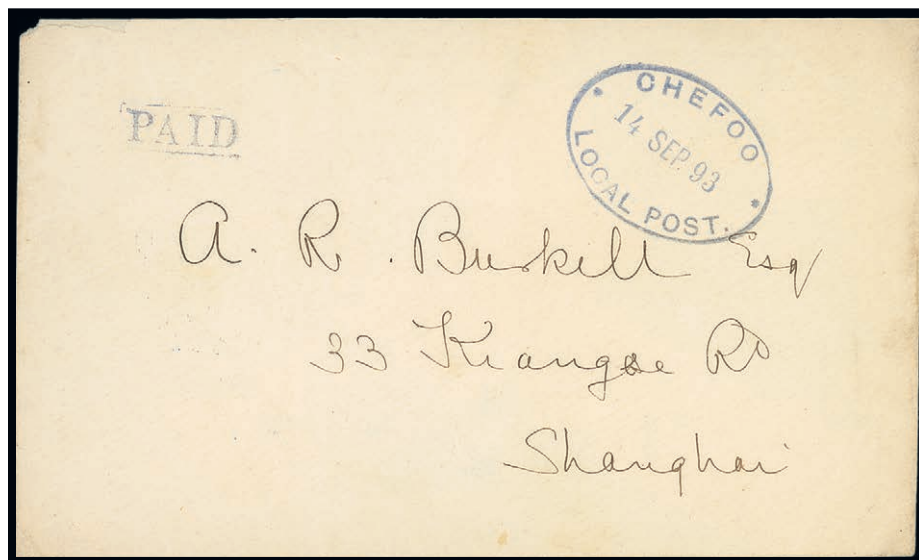 PAID
CHEFOO
14 SEP. 93
LOCAL POST.
A. R. Burkill Esq
33 Kiangse Rd
Shanghai